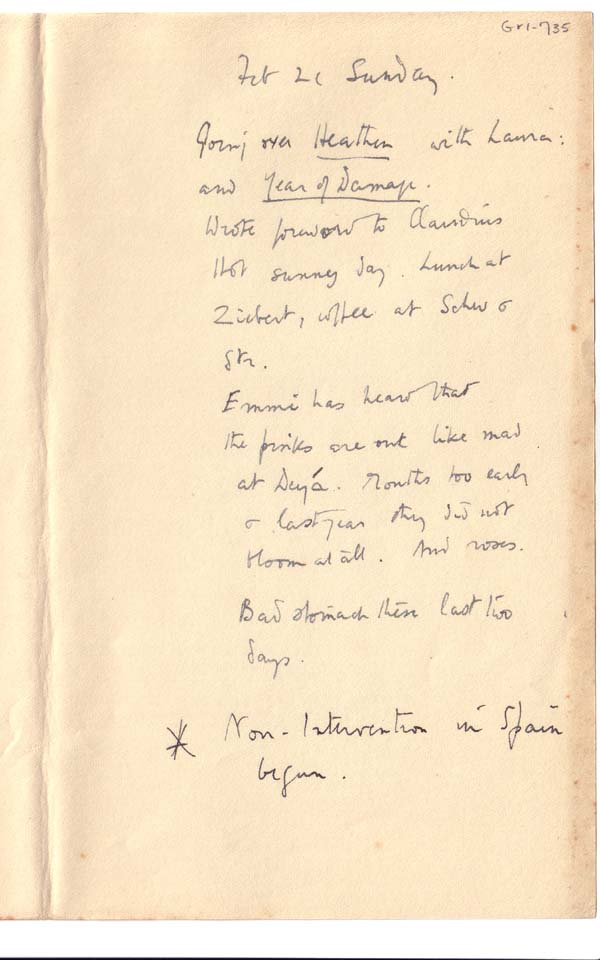 Gr1-735
Feb 21 Sunday.
Going over Heathen with Laura:
and Year of Damage.
Wrote foreword to Claudius
Hot sunny day. Lunch at
Ziebert, coffee at
Str.
Emmi has heard that
the pinks are out like mad
at Deyá. Months too early
& last year they did not
bloom at all. And roses.
Bad stomach these last two
days.
* Non-Intervention in Spain
begun.